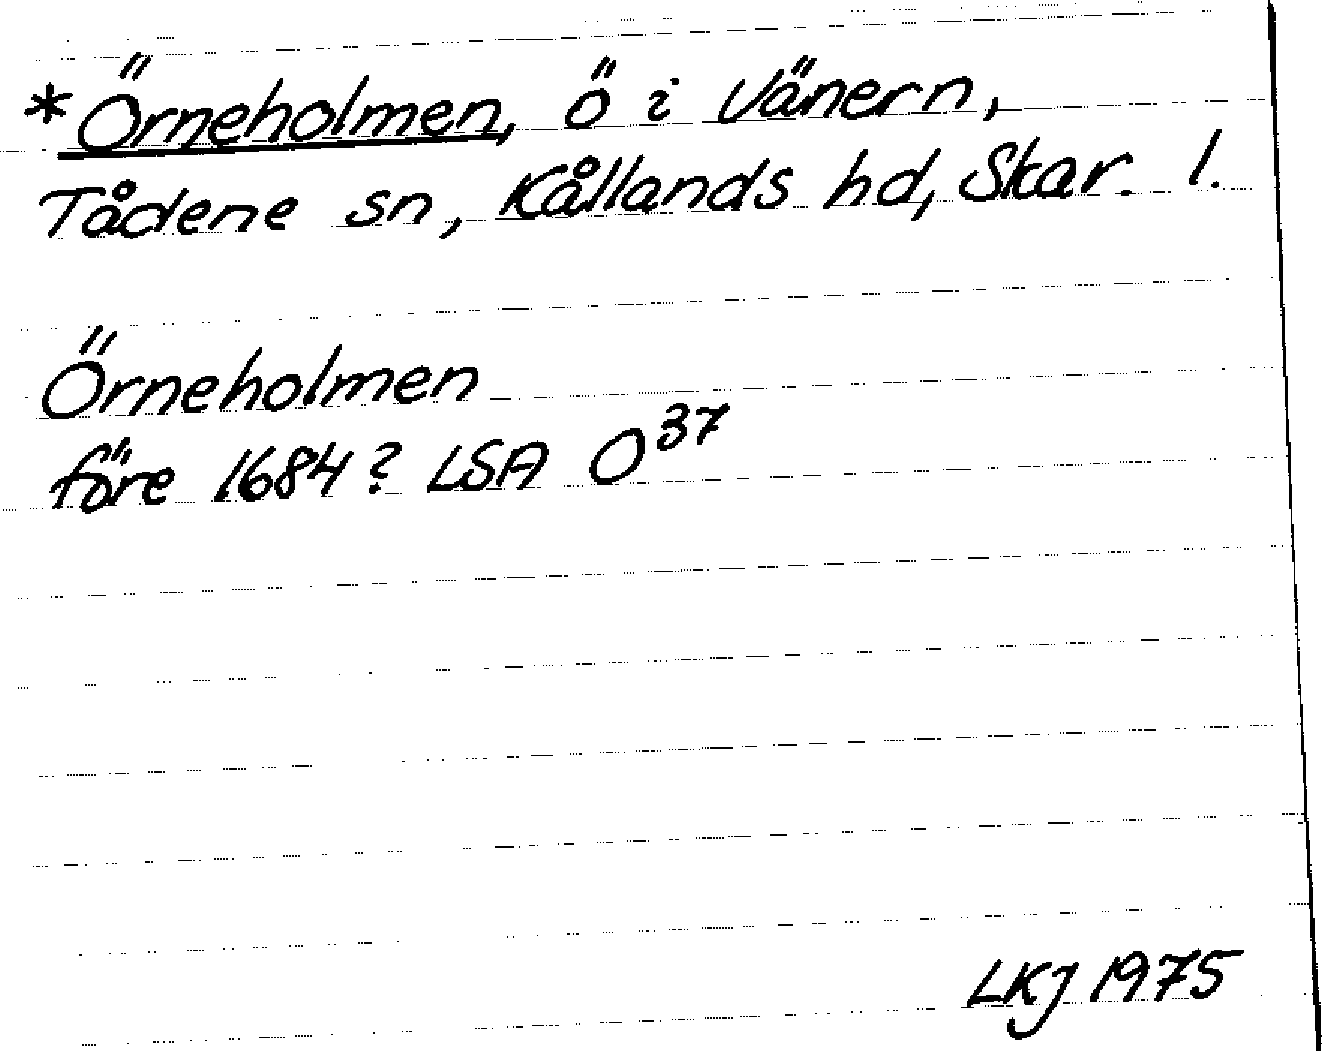 *Örneholmen, ö i Vänern,
Tådene sn, Kållands hd, Skar. l.
Örneholmen
före 1684? LSA O37
LKJ 1975